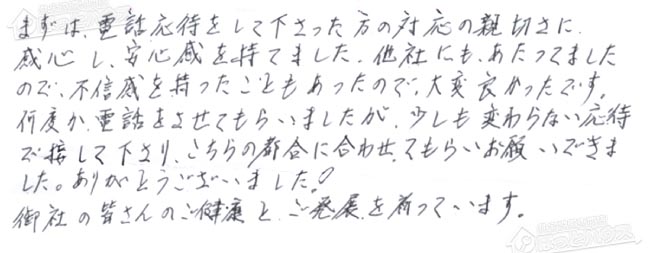 まずは、電話応待をして下さった方の対応の親切さに、
感心し、安心感を持てました。他社にも、あたってました
ので、不信感を持ったこともあったので、大変良かったです。
何度か、電話をさせてもらいましたが、少しも変わらない応待
で接して下さり、こちらの都合に合わせてもらいお願いできま
した。ありがとうございました！
御社の皆さんのご健康と、ご発展を祈っています。